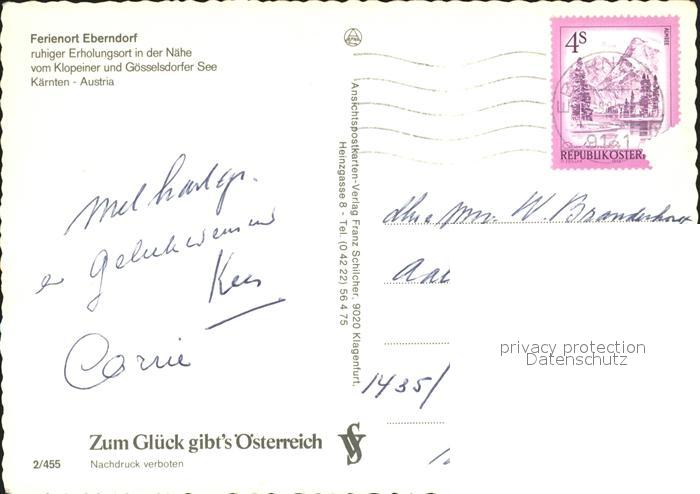 Ferienort Eberndorf
ruhiger Erholungsort in der Nähe
vom Klopeiner und Gösselsdorfer See
Kärnten - Austria
Met hartgr.
en Gelukwensen
Kees
Corrie
Zum Glück gibt's Österreich
2/455 Nachdruck verboten
Ansichtspostkarten-Verlag Franz Schilcher, 9020 Klagenfurt,
Heinzgasse 8 - Tel. (0 42 22) 56 4 75
4S
ALMSEE
REPUBLIK ÖSTER
9141
W. Brandenhorst
Aan
1435/
privacy protection
Datenschutz